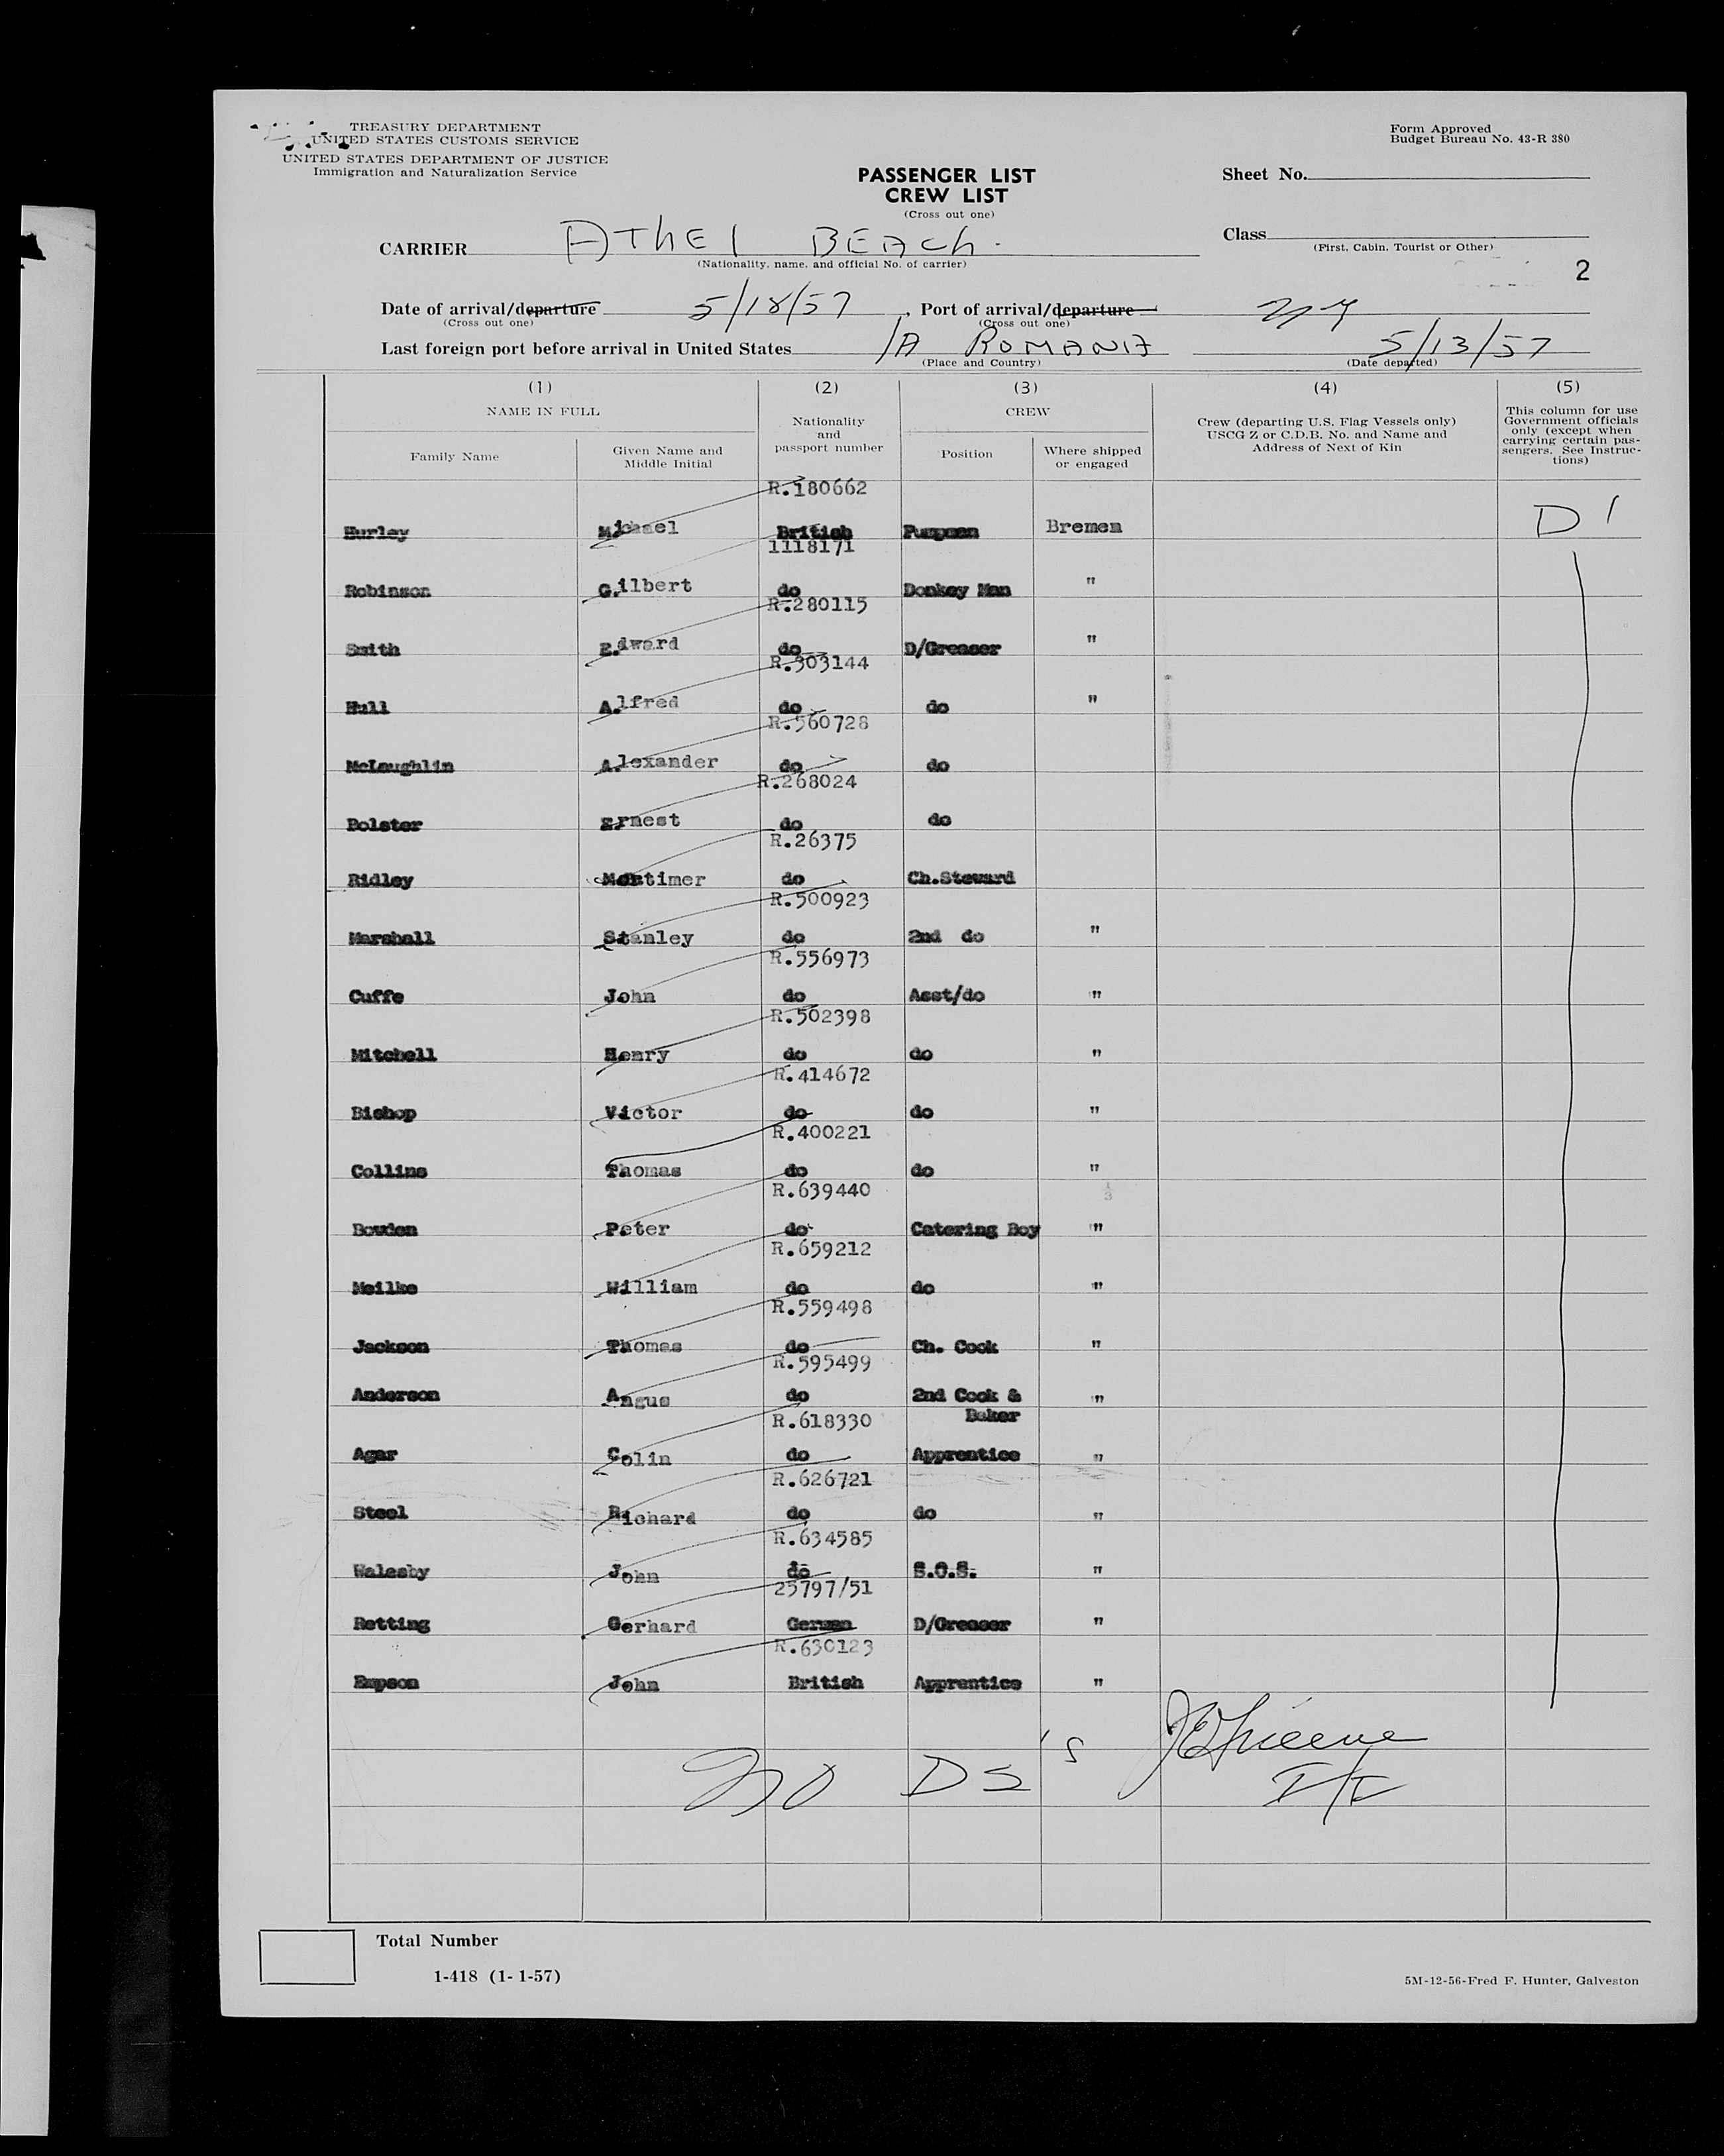 TREASURY DEPARTMENT
UNITED STATES CUSTOMS SERVICE
UNITED STATES DEPARTMENT OF JUSTICE
Immigration and Naturalization Service
Form Approved
Budget Bureau No. 43-R 380
PASSENGER LIST
CREW LIST
(Cross out one)
Sheet No.
CARRIER AThEl BEACh.
(Nationality, name, and official No. of carrier)
Class
(First, Cabin, Tourist or Other)
2
Date of arrival/departure 5/18/57, Port of arrival/departure NY
(Cross out one) (Cross out one)
Last foreign port before arrival in United States /A ROMANA 5/13/57
(Place and Country) (Date departed)
(1) (2) (3) (4) (5)
NAME IN FULL
Family Name
Given Name and Middle Initial
Nationality and passport number
CREW
Position
Where shipped or engaged
Crew (departing U.S. Flag Vessels only)
USCG Z or C.D.B. No. and Name and
Address of Next of Kin
This column for use
Government officials
only (except when
carrying certain pas-
sengers. See Instruc-
tions)
R.180662
Hurley Michael British Pumpman Bremen D1
1118171
Robinson Gilbert do Donkey Man "
R.280115
Smith Edward do D/Greaser "
R.303144
Hull Alfred do do "
R.560728
McLaughlin Alexander do do
R.268024
Bolster Ernest do do
R.26375
Ridley Mortimer do Ch.Steward
R.500923
Marshall Stanley do 2nd do "
R.556973
Cuffe John do Asst/do "
R.502398
Mitchell Henry do do "
R.414672
Bishop Victor do do "
R.400221
Collins Thomas do do "
R.639440
Bowden Peter do Catering Boy "
R.659212
Meilke William do do "
R.559498
Jackson Thomas do Ch. Cook "
R.595499
Anderson Angus do 2nd Cook & "
Baker
R.618330
Agar Colin do Apprentice "
R.626721
Steel Richard do do "
R.634585
Walesby John do S.O.S. "
25797/51
Retting Gerhard German D/Greaser "
R.630123
Empson John British Apprentice "
no DS's
I/I
Total Number
1-418 (1-1-57)
5M-12-56-Fred F. Hunter, Galveston